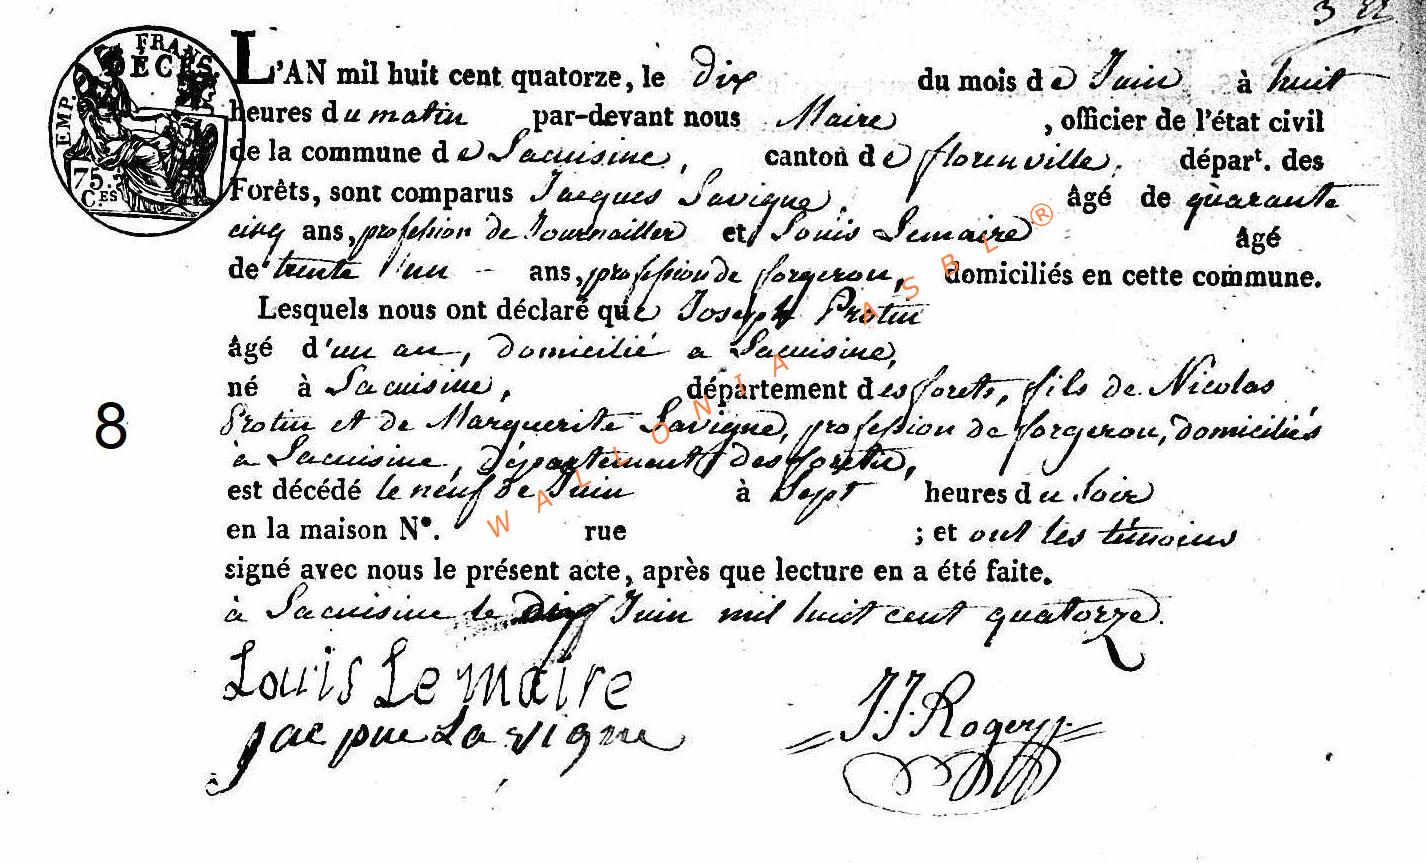 3 22
EMP. FRANS.
DÉCÈS.
75.
C.ES
L'AN mil huit cent quatorze, le dix du mois de Juin à huit
heures du matin par-devant nous Maire , officier de l'état civil
de la commune de Lacuisine, canton de florenville, départ. des
Forêts, sont comparus Jacques Lavigne, âgé de quarante
cinq ans, profession de Journaillier et Louis Lemaire âgé
de trente d'un – ans, profession de forgeron, domiciliés en cette commune.
Lesquels nous ont déclaré que Joseph Protin
âgé d'un an, domicilié a Lacuisine,
né à Lacuisine, département des forets, fils de Nicolas
8
Protin et de Marguerite Lavigne, profession de forgeron, domiciliés
à Lacuisine, département des forêts,
est décédé le neuf de Juin à Sept heures du soir
en la maison N°. rue ; et ont les témoins
signé avec nous le présent acte, après que lecture en a été faite.
à Lacuisine le dix Juin mil huit cent quatorze.
Louis Le maire
Jacque Lavigne
J.J. Rogery
WALLONIA ASBL ®